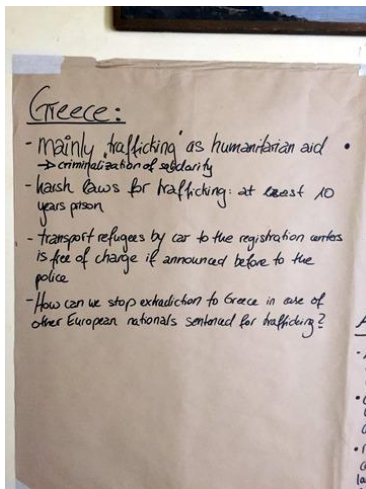 Greece:
- mainly „trafficking" as humanitarian aid
→ criminalization of solidarity
- harsh laws for trafficking: at least 10
years prison
- transport refugees by car to the registration centers
is free of charge if announced before to the
police
- How can we stop extradiction to Greece in case of
other European nationals sentenced for trafficking?